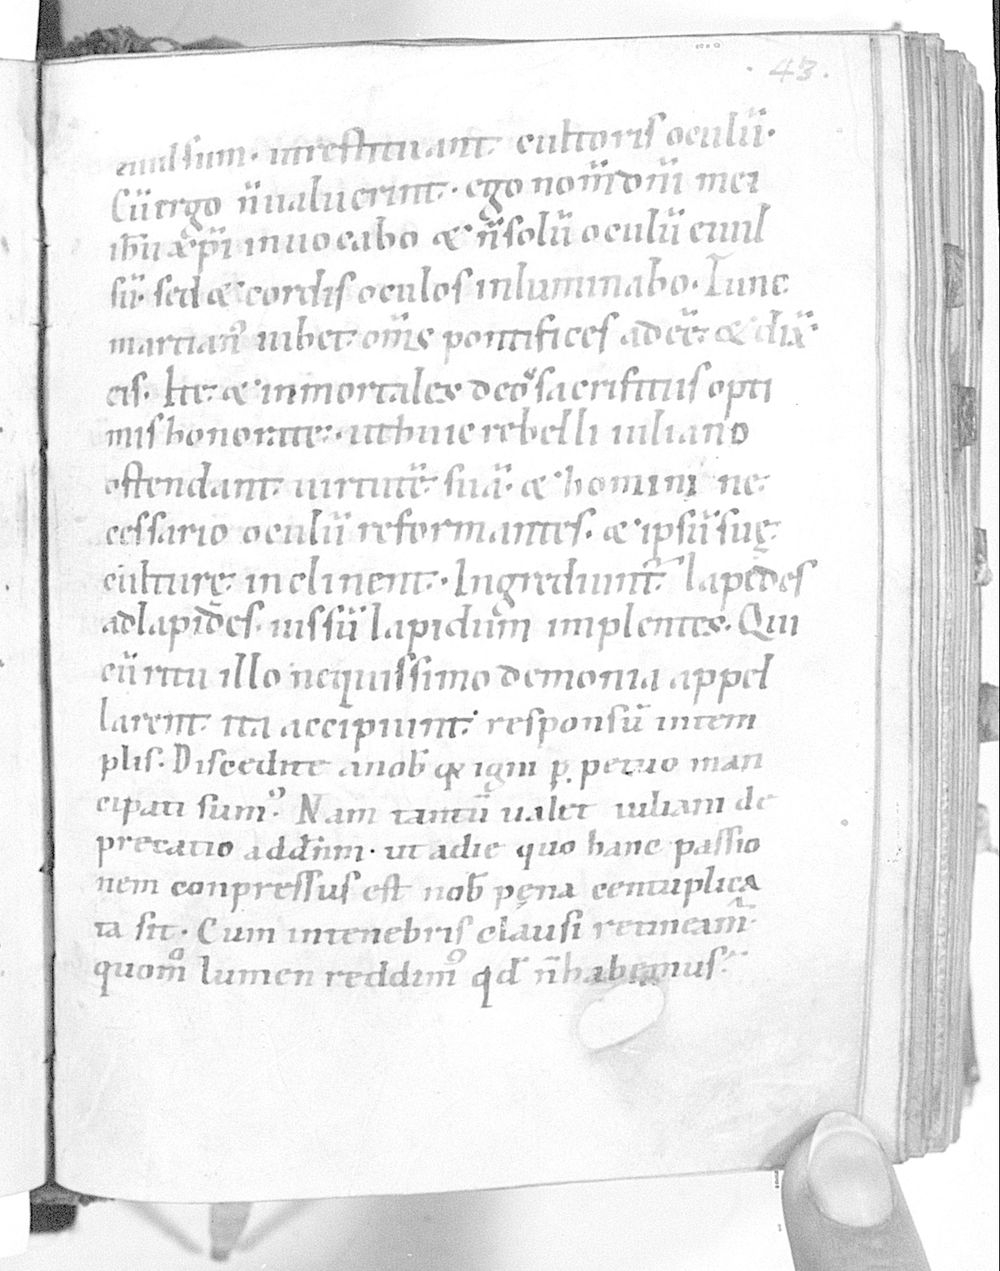 . 43.
euulsum. ut restituant cultoris oculū.
Cū ergo n̄ ualuerint. ego nom̄ dn̄i mei
ihū xp̄i inuocabo & n̄ solū oculū euul
sū. sed & cordis oculos inluminabo. Tunc
martian' iubet om̄s pontifices ad eē. & diā
eis. Ite. & inmortales deos sacrifitiis opti
mis honorate. ut huic rebelli iuliano
ostendant uirtutē suā. & homini ne
cessario oculū reformantes. & ipsū suę
culturę inclinent. Ingrediunt̄ lapides
ad lapides. iussū lapidum implentes. Qui
cū ritu illo nequissimo demonia appel
larent. ita accipiunt responsū in tem
plis. Discedite a nob̄ q igni p̲petuo man
cipati sum'. Nam tantū ualet iuliani de
precatio ad dn̄m. ut a die quo hanc passio
nem conpressus est nob̄ pęna centuplica
ta sit. Cum in tenebris clausi retineam̄
quom̊ lumen reddim' qd̄ n̄ habemus.